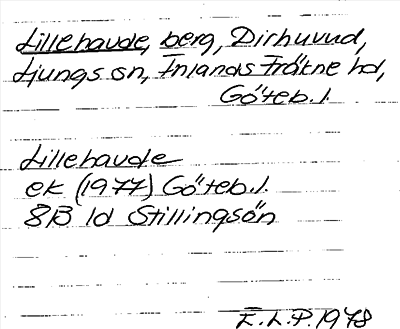 Lillehaude, berg, Dirhuvud,
Ljungs sn, Inlands Fräkne hd,
Göteb. l.
Lillehaude
ek (1977) Göteb. l.
8B 1d Stillingsön
E.L.P. 1978